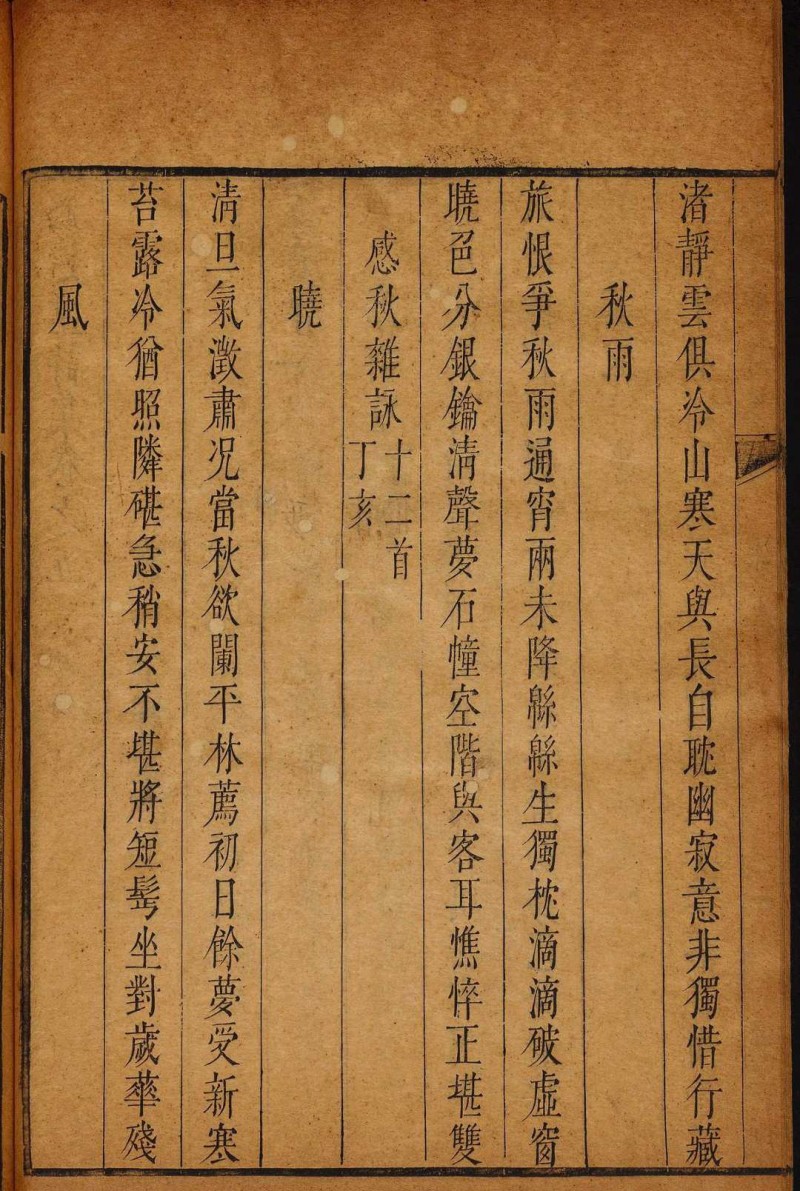 渚靜雲俱冷山寒天與長自耽幽寂意非獨惜行藏
秋雨
旅恨爭秋雨通宵兩未降緜緜生獨枕滴滴破虛窗
曉色分銀鑰淸聲夢石幢空階與客耳憔悴正堪雙
感秋雜詠十二首丁亥
曉
淸旦氣澂肅况當秋欲闌平林薦初日餘夢受新寒
苔露冷猶照隣碪急稍安不堪將短髩坐對歲華殘
風